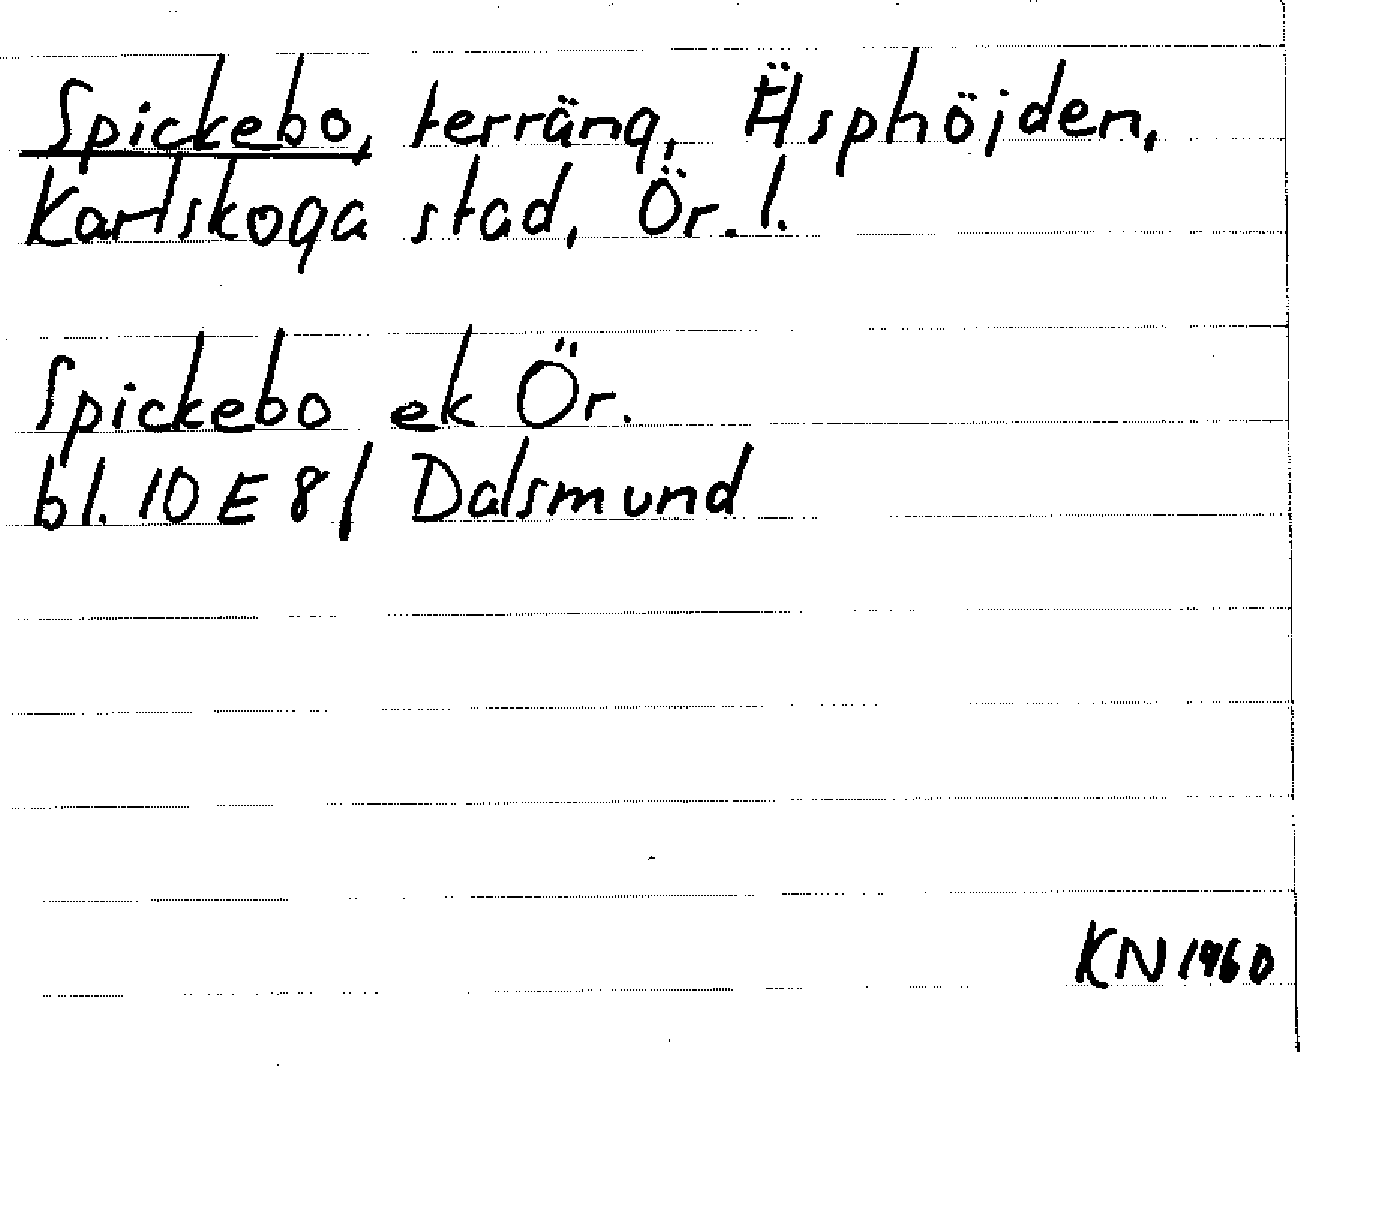 Spickebo, terräng, Äsphöjden,
Karlskoga stad, Ör. l.
Spickebo ek Ör.
bl. 10 E 8 f Dalsmund
KN 1960